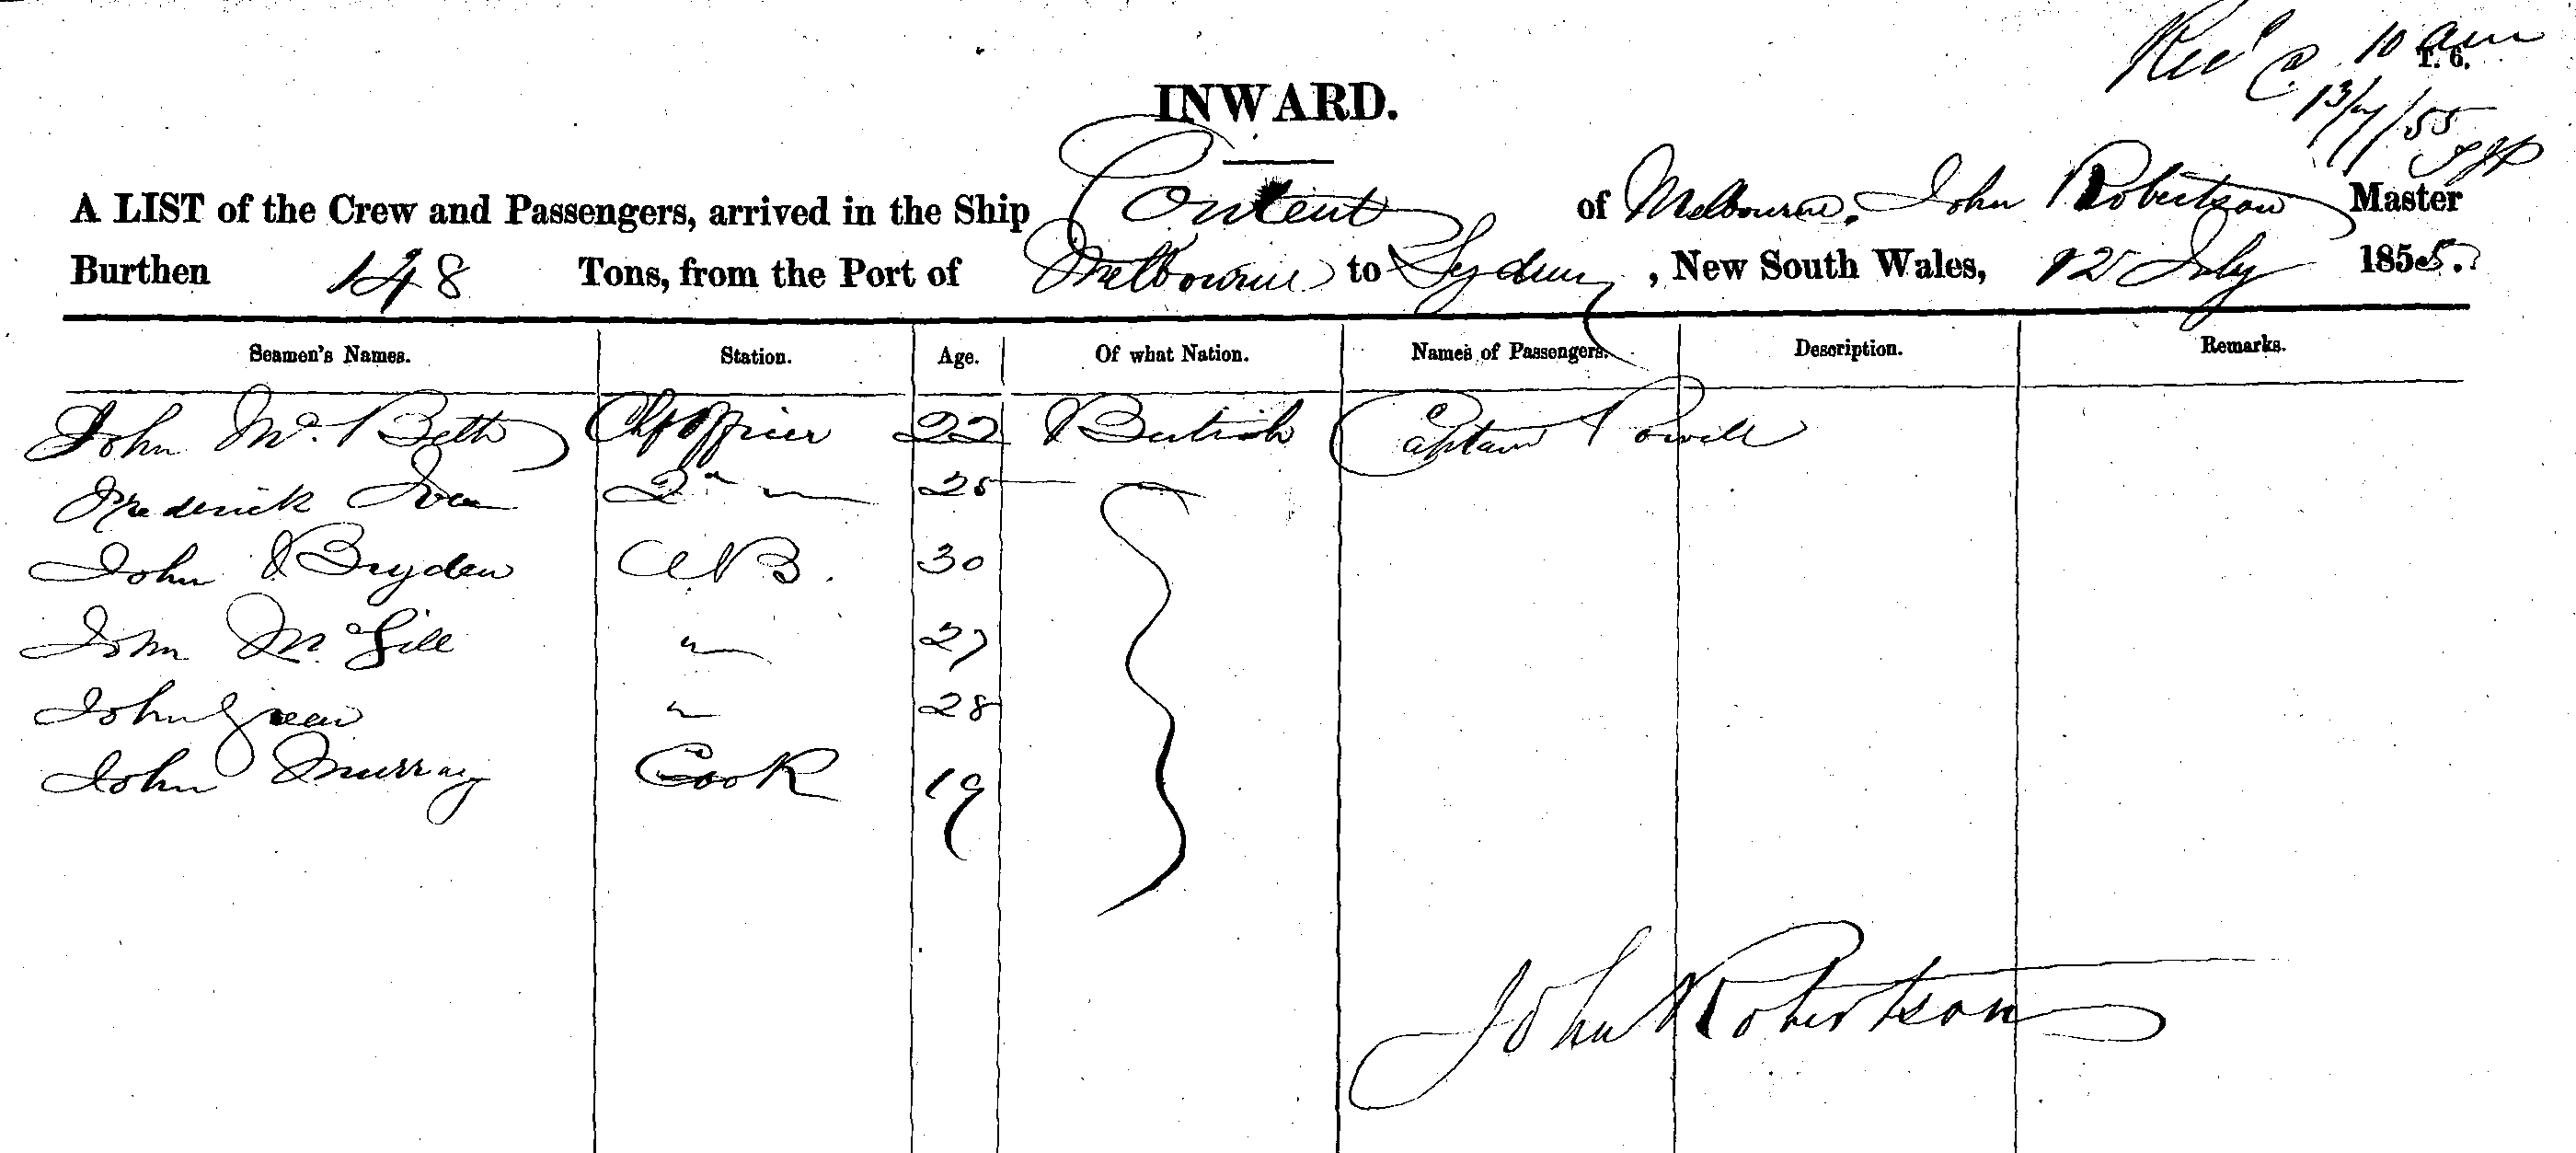 Recd @ 10 am
T. 6.
13/7/55
INWARD.
A LIST of the Crew and Passengers, arrived in the Ship Content of Melbourne, John Robertson Master
Burthen 148 Tons, from the Port of Melbourne to Sydney, New South Wales, 12 July 1855.
Seamen's Names. Station. Age. Of what Nation. Names of Passengers. Description. Remarks.
John McBeth Chf Officer 22 British Captain Powell
Frederick 2d " 25
John Bryden AB. 30
John McGill " 27
John Green " 28
John Murray Cook 19
John Robertson